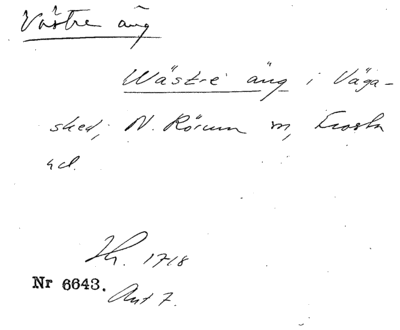 Västre äng
Wästre äng i Väga-
sked, N. Rörum sn, Frosta
hd.
Th. 1718
Nr 6643.
Ant 7.